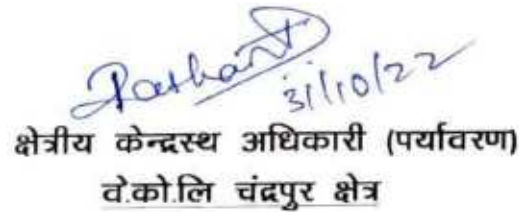 31/10/22
क्षेत्रीय केन्द्रस्थ अधिकारी (पर्यावरण)
वे.को.लि चंद्रपुर क्षेत्र